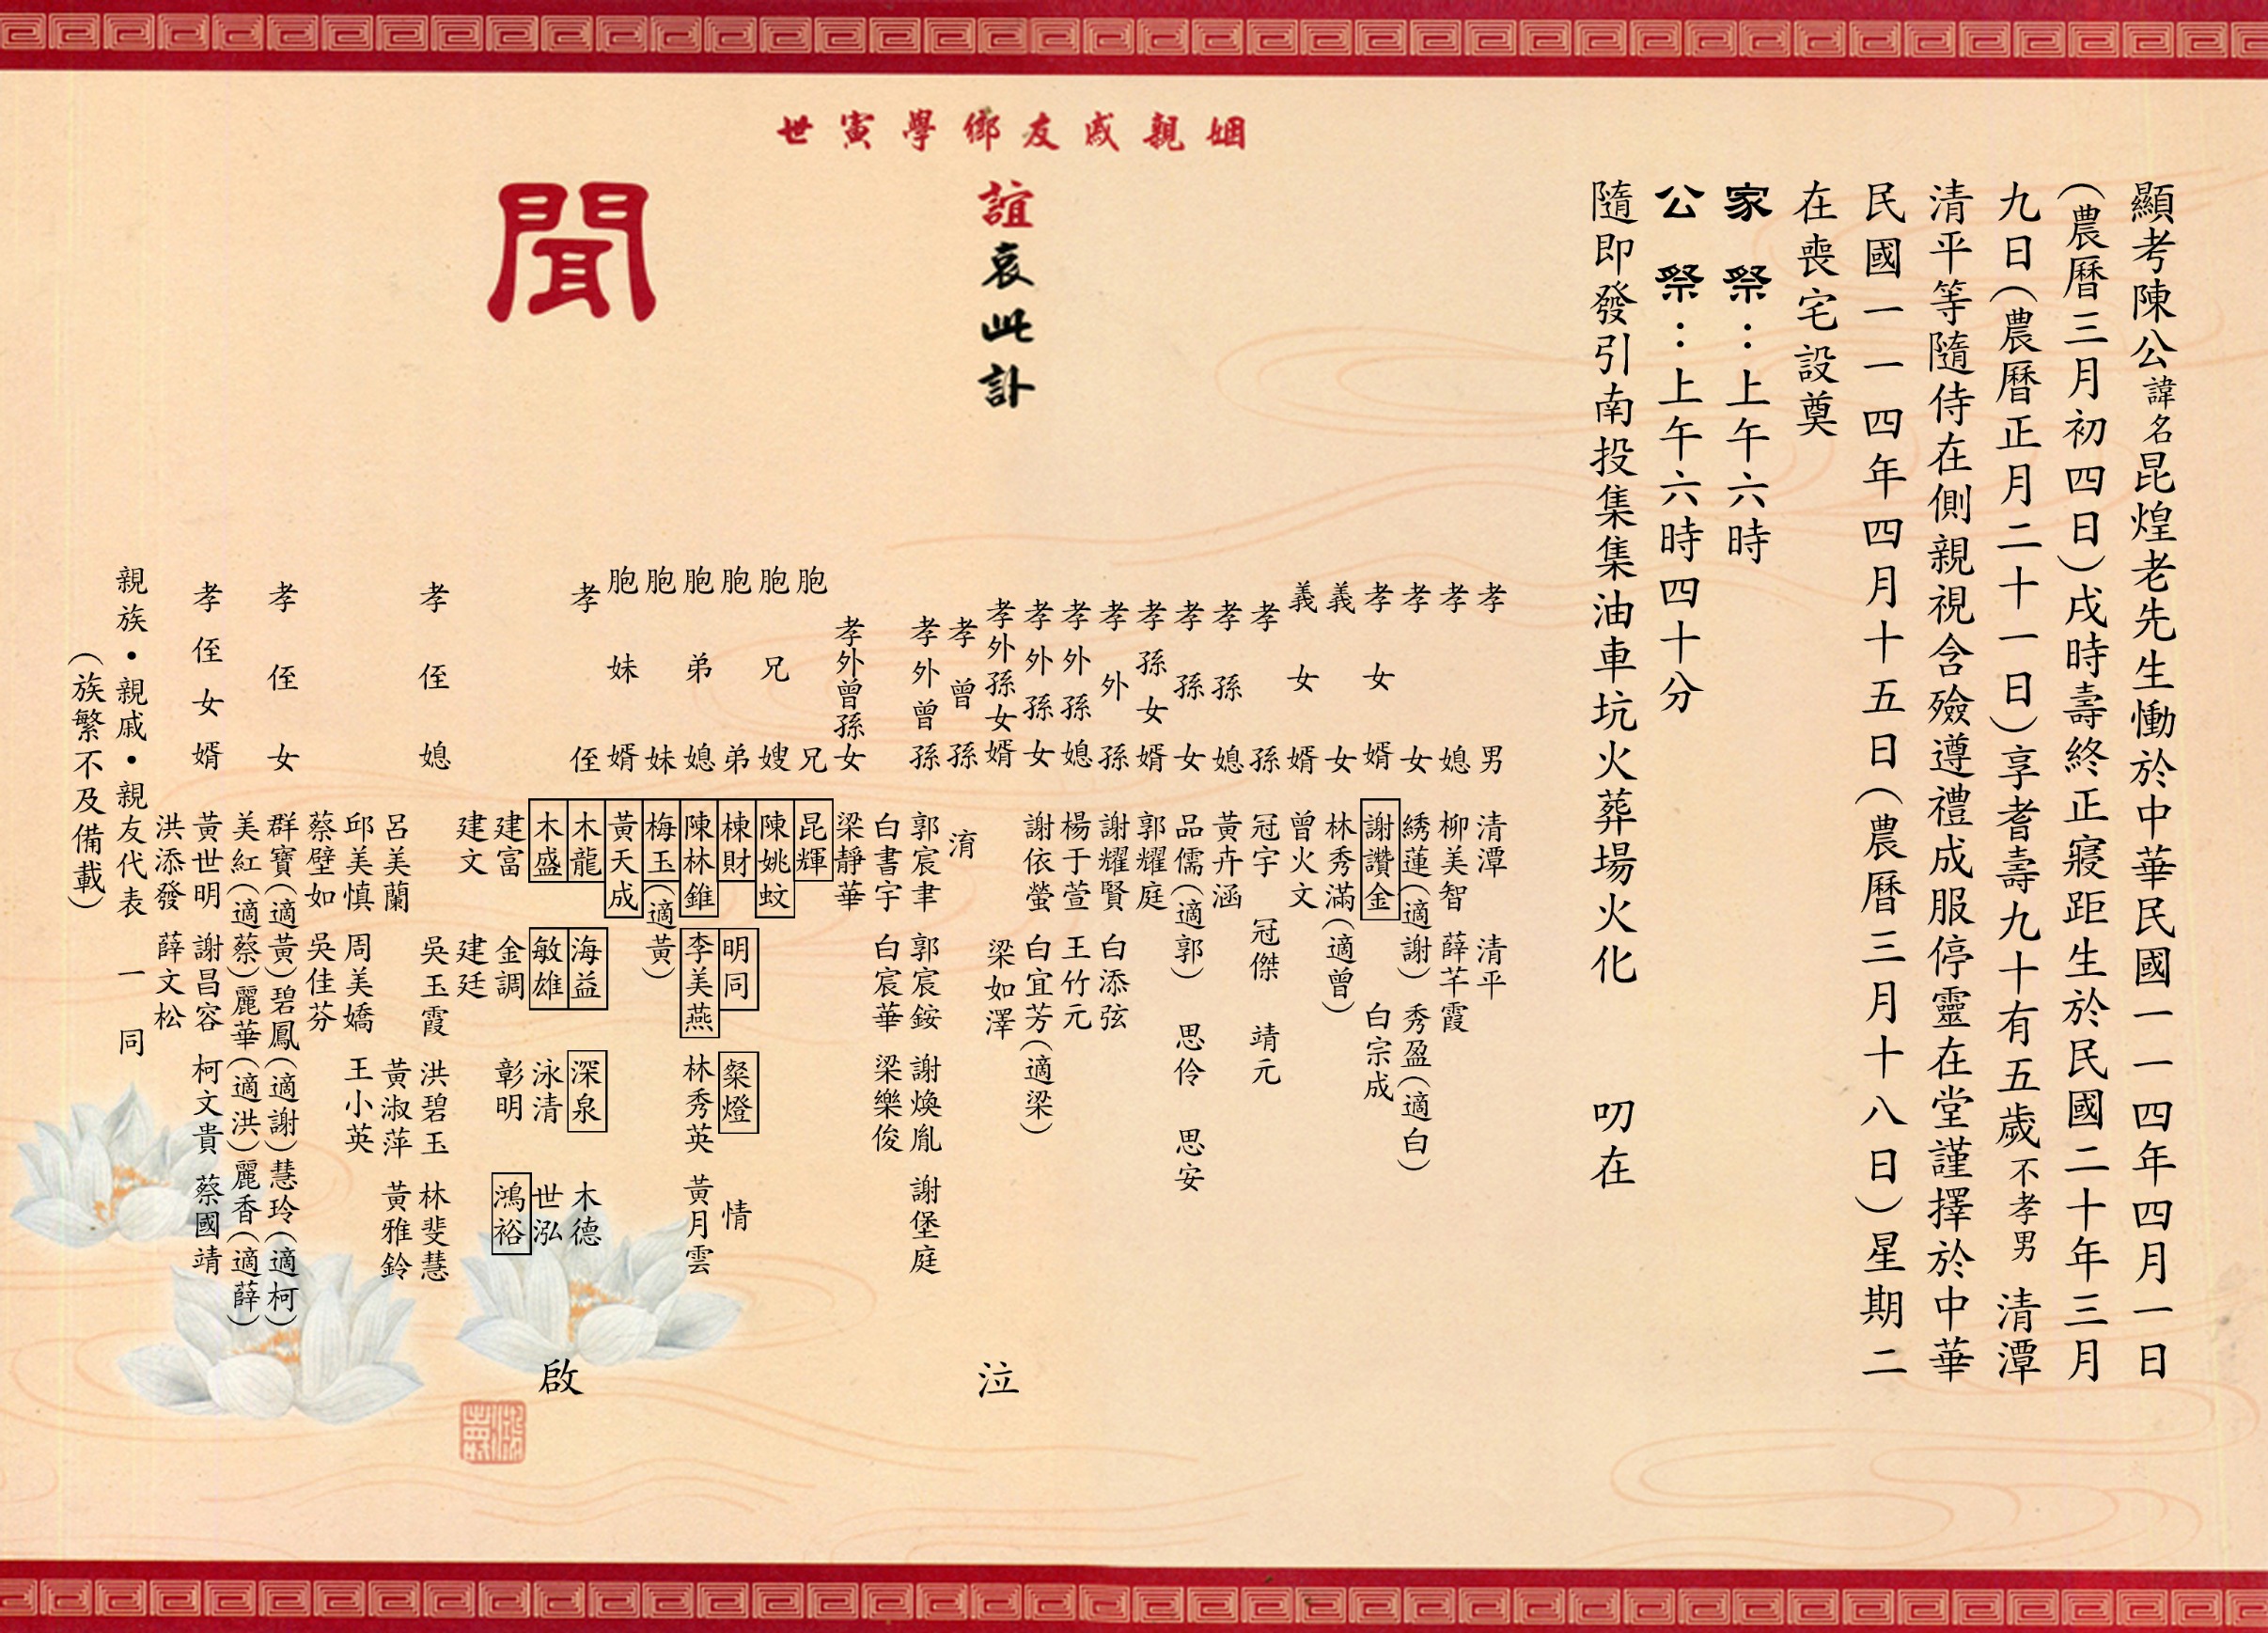 顯考陳公諱名昆煌老先生慟於中華民國一一四年四月一日
(農曆三月初四日)戌時壽終正寢距生於民國二十年三月
九日(農曆正月二十一日)享耆壽九十有五歲不孝男 清潭
清平等隨侍在側親視含殮遵禮成服停靈在堂謹擇於中華
民國一一四年四月十五日(農曆三月十八日)星期二
在喪宅設奠
家 祭:上午六時
公 祭:上午六時四十分
隨即發引南投集集油車坑火葬場火化 叨在
姻親戚友鄉學寅世
誼哀此訃
聞
孝男 清潭 清平
孝媳 柳美智 薛芊霞
孝女 綉蓮(適謝) 秀盈(適白)
孝女婿 謝讚金 白宗成
義女 林秀滿(適曾)
義女婿 曾火文
孝孫 冠宇 冠傑 靖元
孝孫媳 黃卉涵
孝孫女 品儒(適郭) 思伶 思安
孝孫女婿 郭耀庭
孝外孫 謝耀賢 白添弦
孝外孫媳 楊于萱 王竹元
孝外孫女 謝依螢 白宜芳(適梁)
孝外孫女婿 梁如澤
孝曾孫 淯
孝外曾孫 郭宸聿 郭宸銨 謝煥胤 謝堡庭
白書宇 白宸華 梁樂俊
孝外曾孫女 梁靜華
泣
胞兄 昆輝
胞兄嫂 陳姚蚊
胞弟 棟財 明同 粲燈 情
胞弟媳 陳林錐 李美燕 林秀英 黃月雲
胞妹 梅玉(適黃)
胞妹婿 黃天成
孝侄 木龍 海益 深泉 木德
木盛 敏雄 泳清 世泓
建富 金調 彰明 鴻裕
建文 建廷
孝侄媳 吳玉霞 洪碧玉 林斐慧
呂美蘭 黃淑萍 黃雅鈴
邱美慎 周美嬌 王小英
蔡壁如 吳佳芬
孝侄女 群寶(適黃) 碧鳳(適謝) 慧玲(適柯)
美紅(適蔡) 麗華(適洪) 麗香(適薛)
孝侄女婿 黃世明 謝昌容 柯文貴 蔡國靖
洪添發 薛文松
親族•親戚•親友代表 一 同
(族繁不及備載)
啟